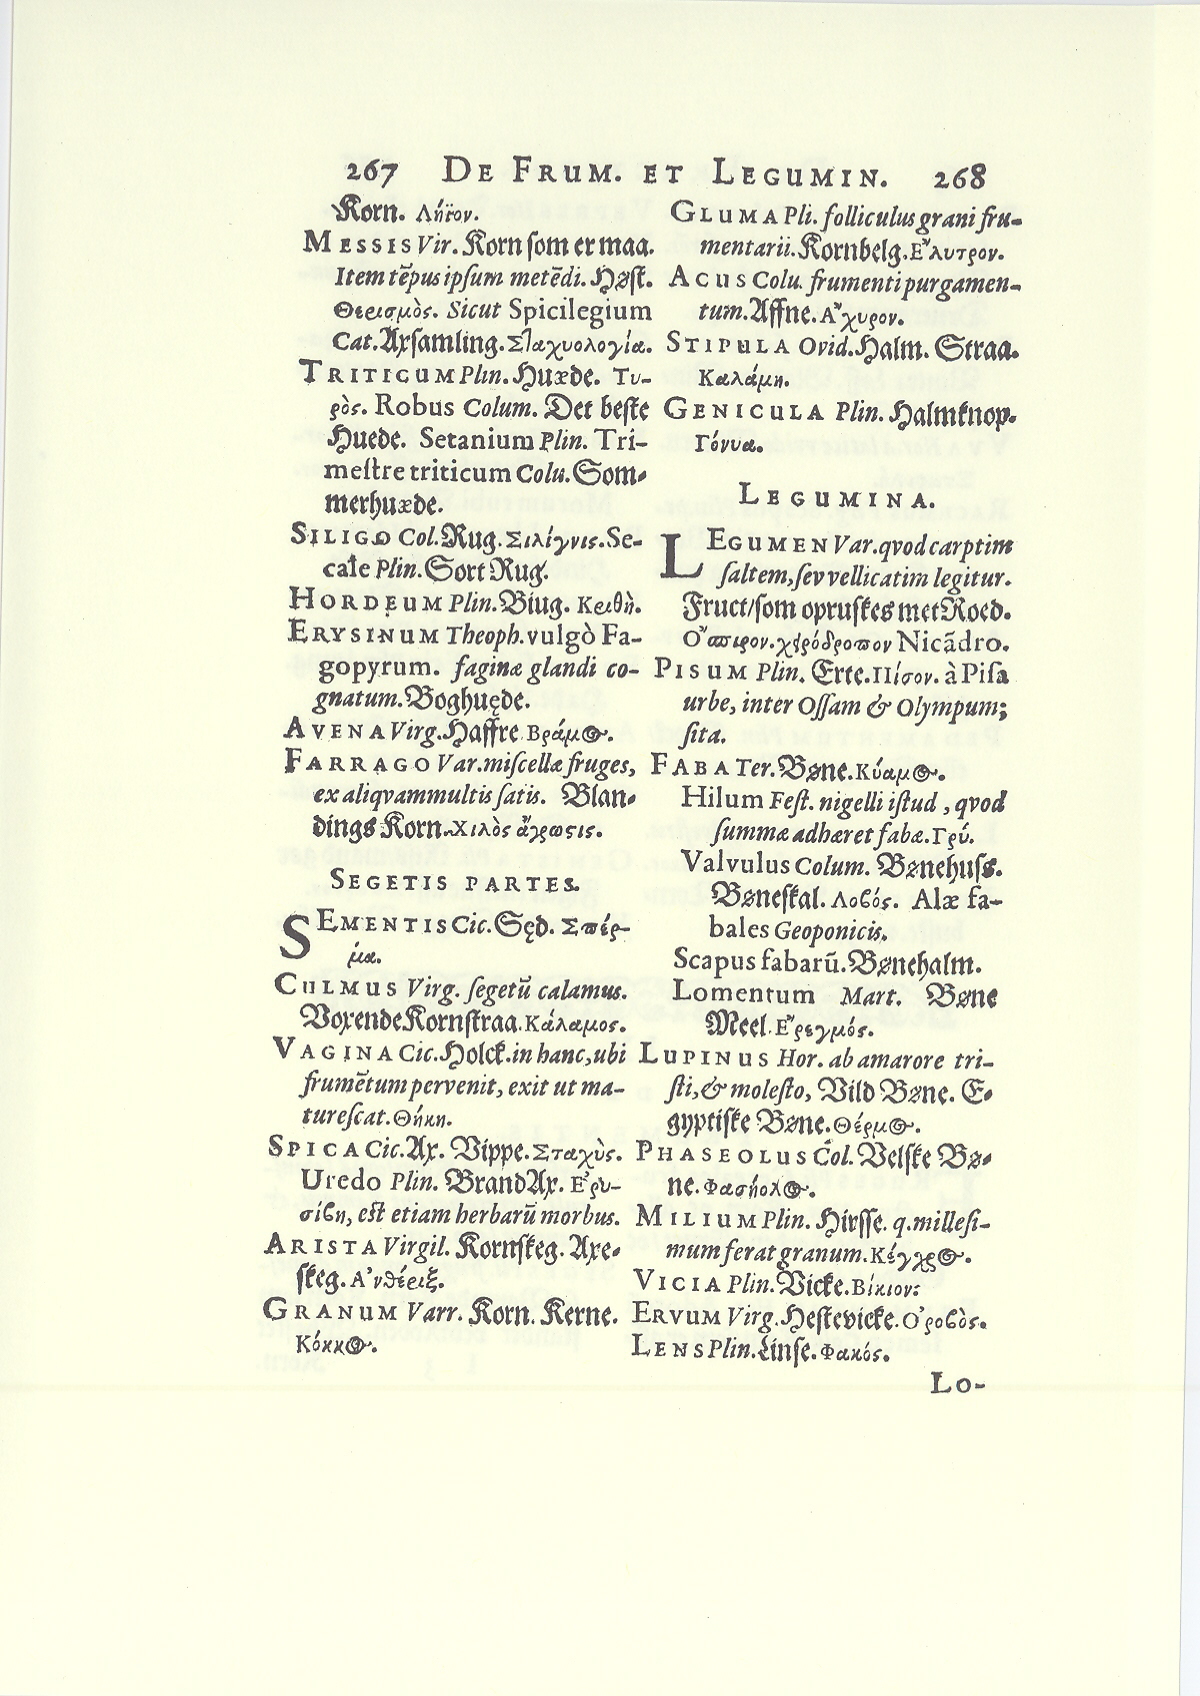 267 DE FRUM. ET LEGUMIN. 268
Korn. Λήϊον.
MESSIS Vir. Korn som er maa.
Item tẽpus ipſum metẽdi. Høſt.
Θεεισμὸς. Sicut Spicilegium
Cat. Axſamling. Σταχυολογία.
TRITICUM Plin. Huæde. Τυ-
ρὸς. Robus Colum. Det beſte
Huede. Setanium Plin. Tri-
meſtre triticum Colu. Som-
merhuæde.
SILIGO Col. Rug. Σιλίγνις. Se-
cale Plin. Sort Rug.
HORDEUM Plin. Biug. Κειθὴ.
ERYSINUM Theoph. vulgò Fa-
gopyrum. faginæ glandi co-
gnatum. Boghuęde.
AVENA Virg. Haffre. Βράμος.
FARRAGO Var. miſcellæ fruges,
ex aliqvammultis ſatis. Blan-
dings Korn. Χιλὸς ἄγρωσις.
SEGETIS PARTES.
SEMENTIS Cic. Sęd. Σπέρ-
μα.
CULMUS Virg. ſegetũ calamus.
Voxende Kornſtraa. Κάλαμος.
VAGINA Cic. Holck. in hanc, ubi
frumẽtum pervenit, exit ut ma-
tureſcat. Θήκη.
SPICA Cic. Ax. Vippe. Σταχὺς.
Uredo Plin. Brand Ax. Ἐρυ-
σίβη, eſt etiam herbarũ morbus.
ARISTA Virgil. Kornſkeg. Axe-
ſkeg. Ἀνθέειξ.
GRANUM Varr. Korn. Kerne.
Κόκκος.
GLUMA Pli. folliculus grani fru-
mentarii. Kornbelg. Ἔλυτρον.
ACUS Colu. frumenti purgamen-
tum. Affne. Ἄχυρον.
STIPULA Ovid. Halm. Straa.
Καλάμη.
GENICULA Plin. Halmknop.
Γόνυα.
LEGUMINA.
LEGUMEN Var. qvod carptim
ſaltem, ſev vellicatim legitur.
Fruct/ ſom opruſkes met Roed.
Ὄσπριον. χεδροπον Nicãdro.
PISUM Plin. Erte. Πίσον. à Piſa
urbe, inter Oſſam & Olympum;
ſita.
FABA Ter. Bøne. Κύαμος.
Hilum Feſt. nigelli iſtud, qvod
ſummæ adhæret fabæ. Γρύ.
Valvulus Colum. Bønehuſs.
Bøneſkal. Λοβός. Alæ fa-
bales Geoponicis.
Scapus fabarũ. Bønehalm.
Lomentum Mart. Bøne
Meel. Ἐρεγμός.
LUPINUS Hor. ab amarore tri-
ſti, & moleſto, Vild Bøne. E-
gyptiſke Bøne. Θέρμος.
PHASEOLUS Col. Velſke Bø-
ne. Φασήολος.
MILIUM Plin. Hirſſe. q. milleſi-
mum ferat granum. Κέγχρος.
VICIA Plin. Vicke. Βίκιον:
ERVUM Virg. Heſtevicke. Ὀροβὸς.
LENS Plin. Linſe. Φακός.
Lo-